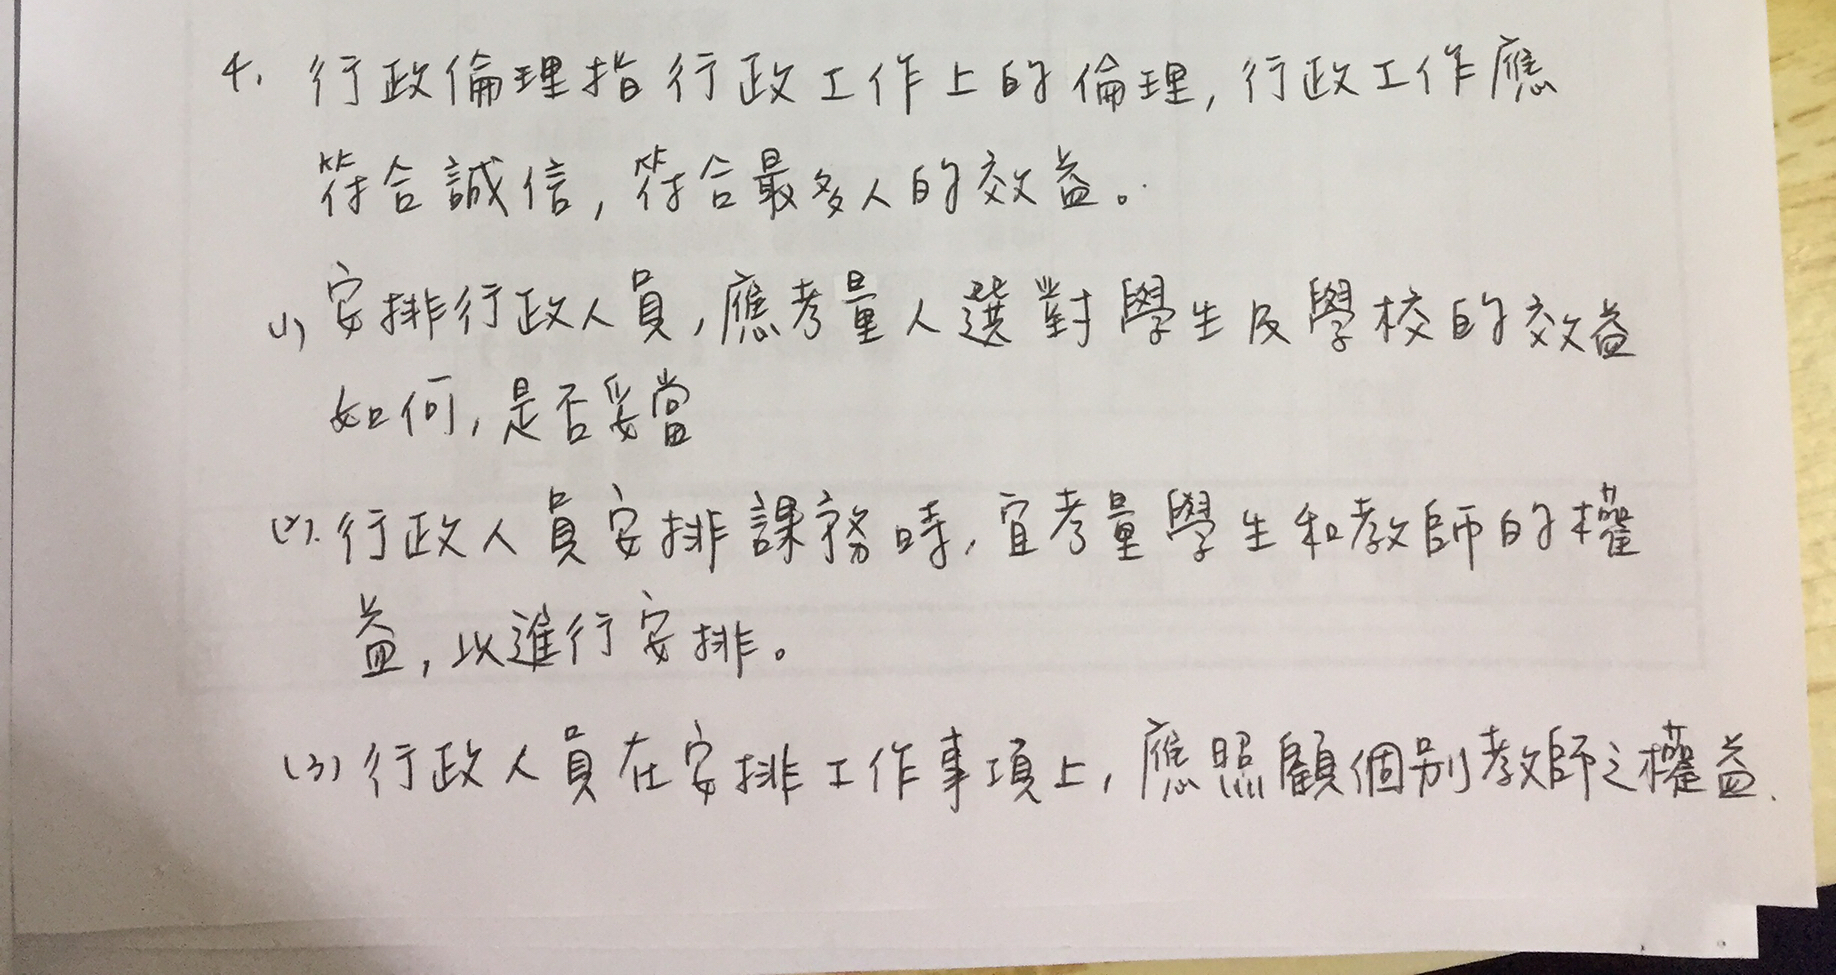 4. 行政倫理指行政工作上的倫理,行政工作應
符合誠信,符合最多人的效益。
(1) 安排行政人員,應考量人選對學生及學校的效益
如何,是否妥當
(2). 行政人員安排課務時,宜考量學生和教師的權
益,以進行安排。
(3) 行政人員在安排工作事項上,應照顧個別教師之權益.